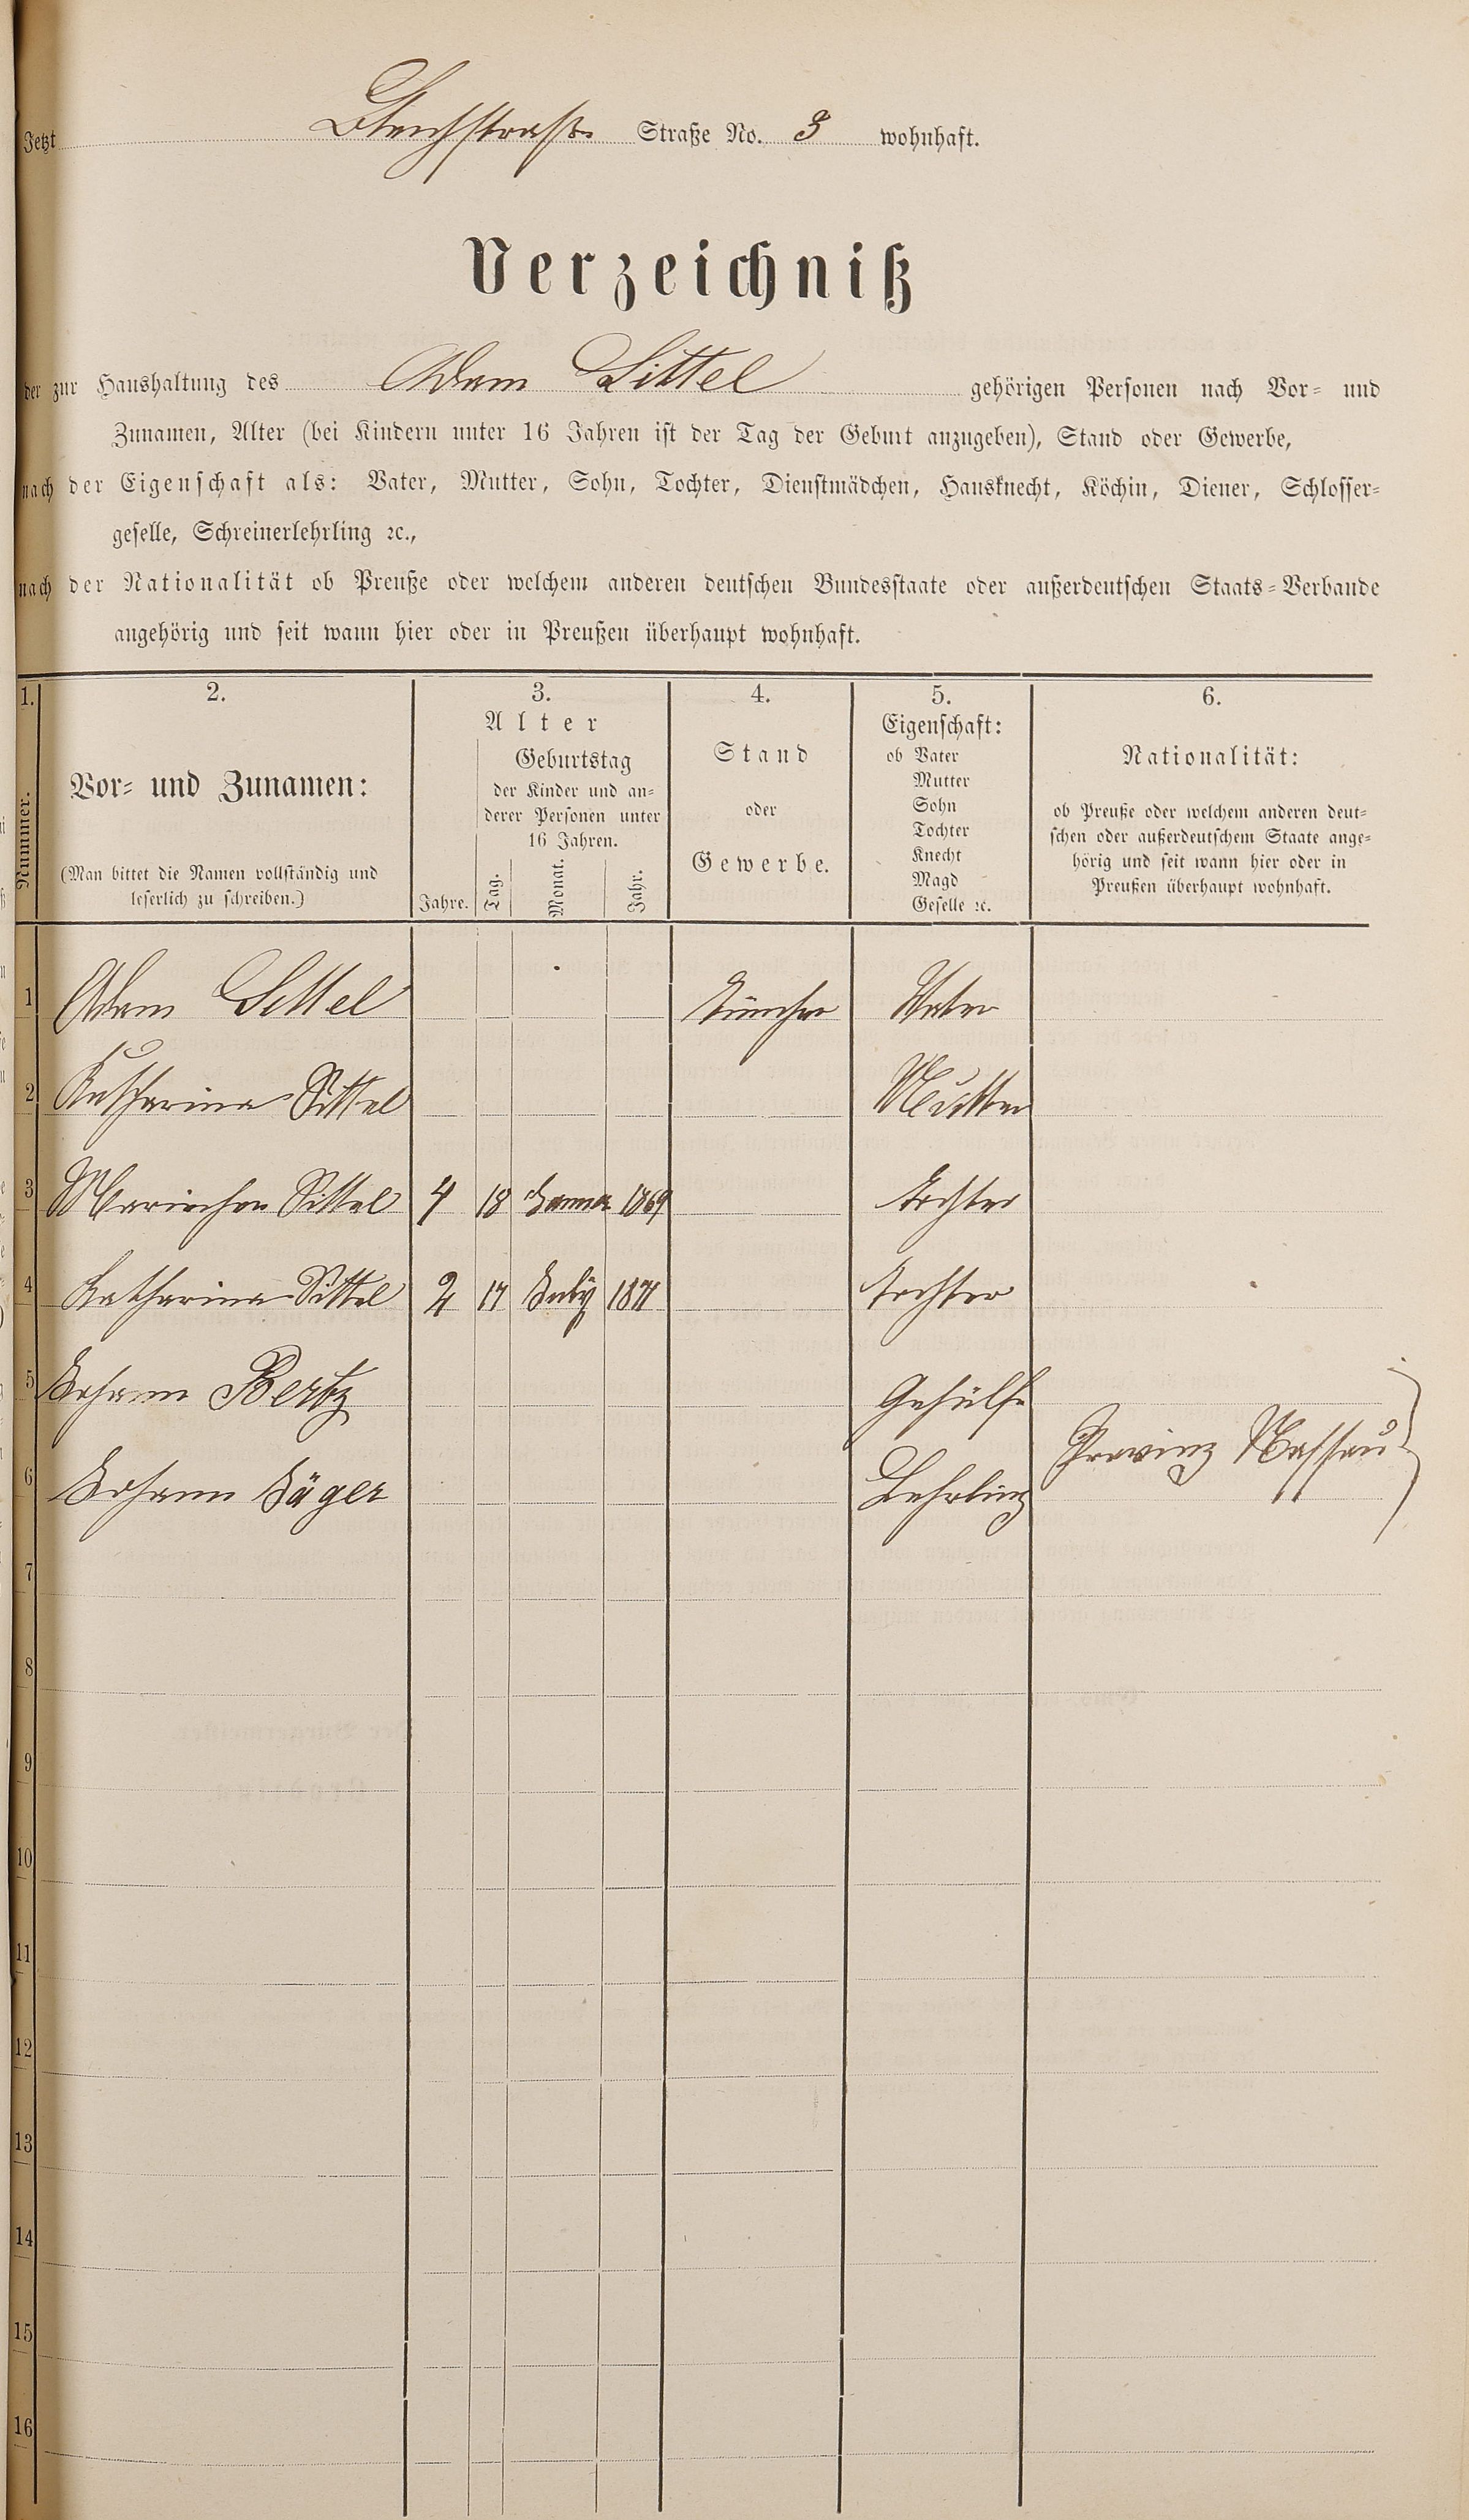 Jetzt Bleichstraße Straße No. 3 wohnhaft.
Verzeichniß
der zur Haushaltung des Adam Sittel gehörigen Personen nach Vor- und
Zunamen, Alter (bei Kindern unter 16 Jahren ist der Tag der Geburt anzugeben), Stand oder Gewerbe,
nach der Eigenschaft als: Vater, Mutter, Sohn, Tochter, Dienstmädchen, Hausknecht, Köchin, Diener, Schlosser-
geselle, Schreinerlehrling ꝛc.,
nach der Nationalität ob Preuße oder welchem anderen deutschen Bundesstaate oder außerdeutschen Staats-Verbande
angehörig und seit wann hier oder in Preußen überhaupt wohnhaft.
1.
Nummer.
2.
Vor- und Zunamen:
(Man bittet die Namen vollständig und
leserlich zu schreiben.)
3.
Alter
Geburtstag
der Kinder und an-
derer Personen unter
16 Jahren.
Jahre. Tag. Monat. Jahr.
4.
Stand
oder
Gewerbe.
5.
Eigenschaft:
ob Vater
Mutter
Sohn
Tochter
Knecht
Magd
Geselle ꝛc.
6.
Nationalität:
ob Preuße oder welchem anderen deut-
schen oder außerdeutschem Staate ange-
hörig und seit wann hier oder in
Preußen überhaupt wohnhaft.
1 Adam Sittel Tüncher Vater
2 Katharina Sittel Mutter
3 Mariechen Sittel 4 18 Januar 1869 Tochter
4 Katharina Sittel 2 17 July 1871 Tochter
5 Johann Bertz Gehülfe
Provinz Nassau
6 Johann Jäger Lehrling
7
8
9
10
11
12
13
14
15
16